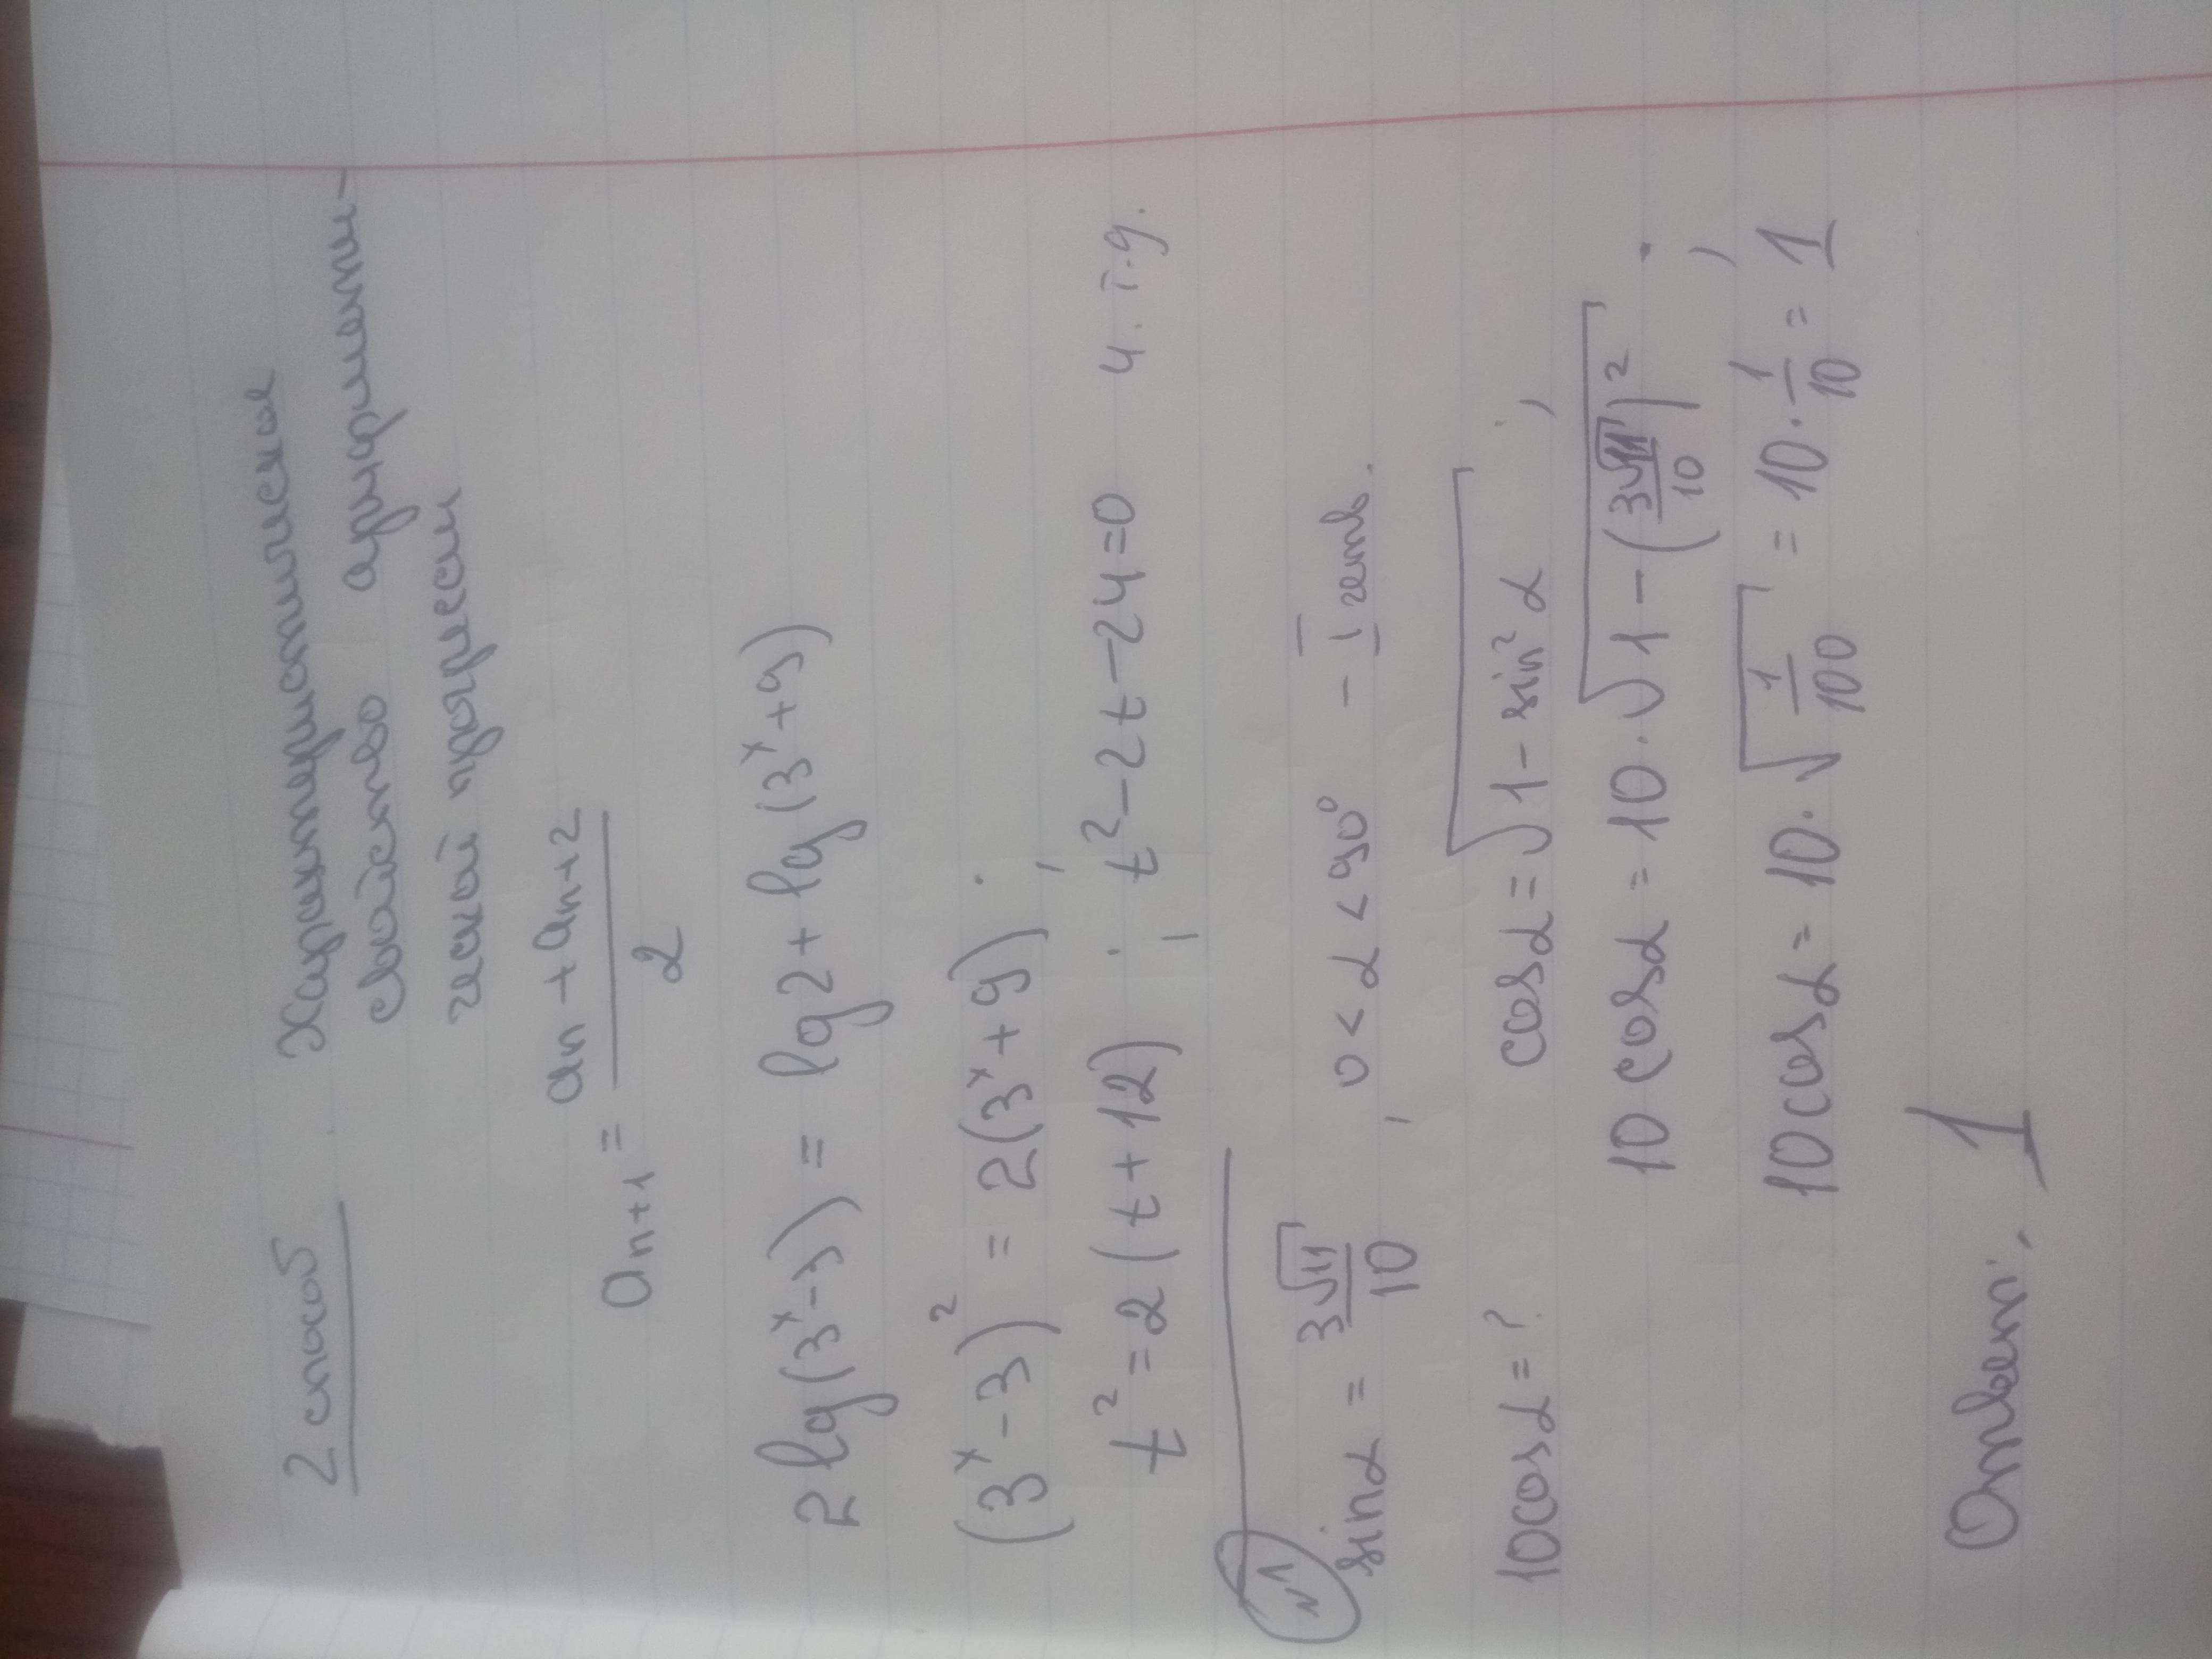 2 способ Характеристическое
свойство арифмети-
ческой прогресии
aₙ₊₁ = (aₙ + aₙ₊₂)/2
2 lg(3ˣ-3) = lg2 + lg(3ˣ+9)
(3ˣ-3)² = 2(3ˣ+9);
t² = 2(t+12); t²-2t-24=0 и.т.д.
№1
sinα = 3√11/10, 0<α<90° - I четв.
10cosα=? cosα=√(1-sin²α);
10cosα=10·√(1-(3√11/10)²);
10cosα=10·√(1/100)=10·1/10=1
Ответ. 1